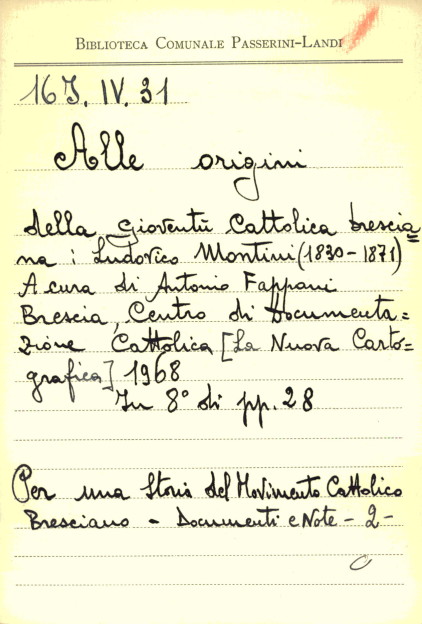 BIBLIOTECA COMUNALE PASSERINI-LANDI
16J. IV. 31
Alle origini
della gioventù Cattolica brescia
na : Ludovico Montini (1830-1871)
A cura di Antonio Fappani
Brescia, Centro di Documenta=
zione Cattolica [La Nuova Carto=
grafica] 1968
In 8° di pp. 28
Per una Storia del Movimento Cattolico
Bresciano - Documenti e Note - 2 -